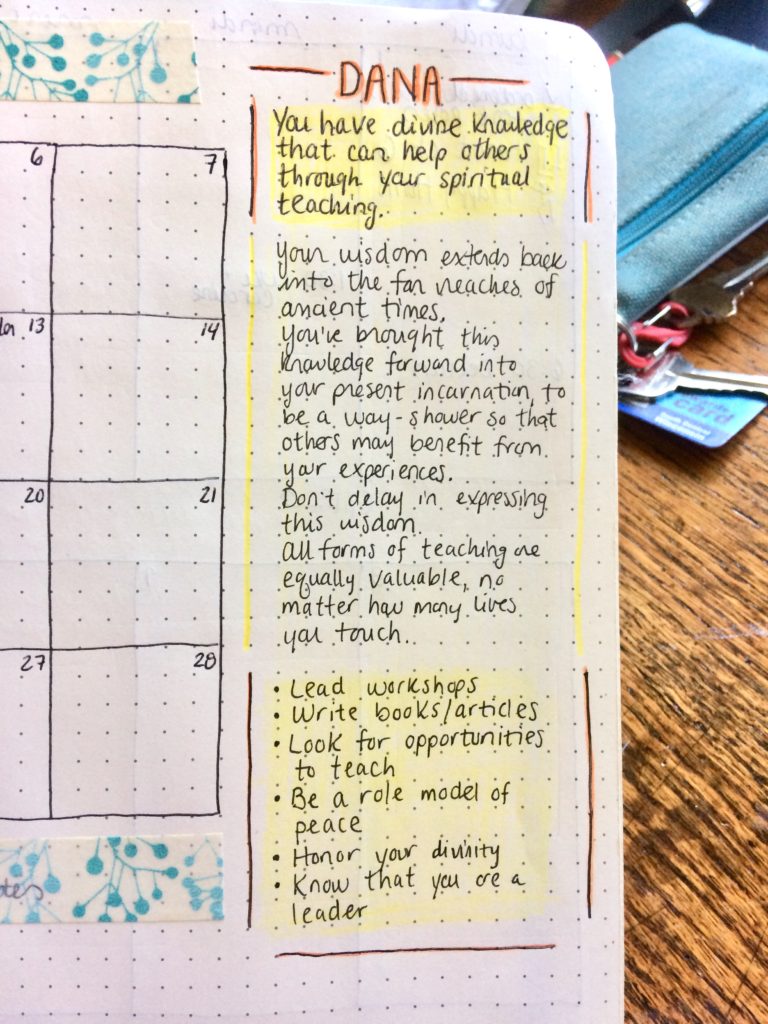 DANA
You have divine knowledge
that can help others
through your spiritual
teaching.
Your wisdom extends back
into the far reaches of
ancient times.
You've brought this
knowledge forward into
your present incarnation, to
be a way-shower so that
others may benefit from
your experiences.
Don't delay in expressing
this wisdom.
All forms of teaching are
equally valuable, no
matter how many lives
you touch.
• Lead workshops
• Write books/articles
• Look for opportunities
to teach
• Be a role model of
peace
• Honor your divinity
• Know that you are a
leader
6
7
13
14
20
21
27
28
card